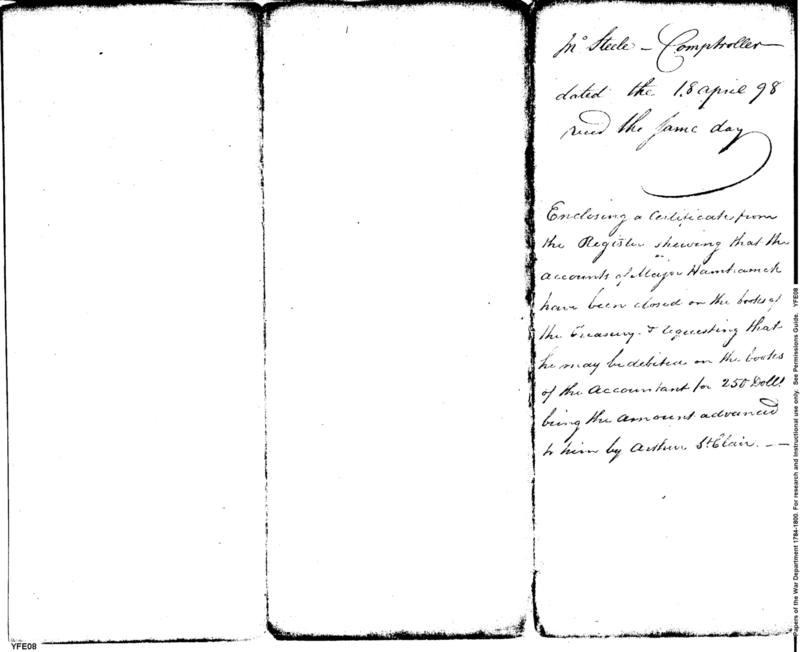 Jnº Steele – Comptroller
dated the 18 april 98
recd the same day
Enclosing a Certificate from
the Register shewing that the
accounts of Major Hamtramck
have been closed on the books of
the Treasury. & requesting that
he may be debited on the books
of the Accountant for 250 Dolls
being the amount advanced
to him by Arthur St Clair. – –
YFE08
Papers of the War Department 1784-1800. For research and instructional use only. See Permissions Guide. YFE08